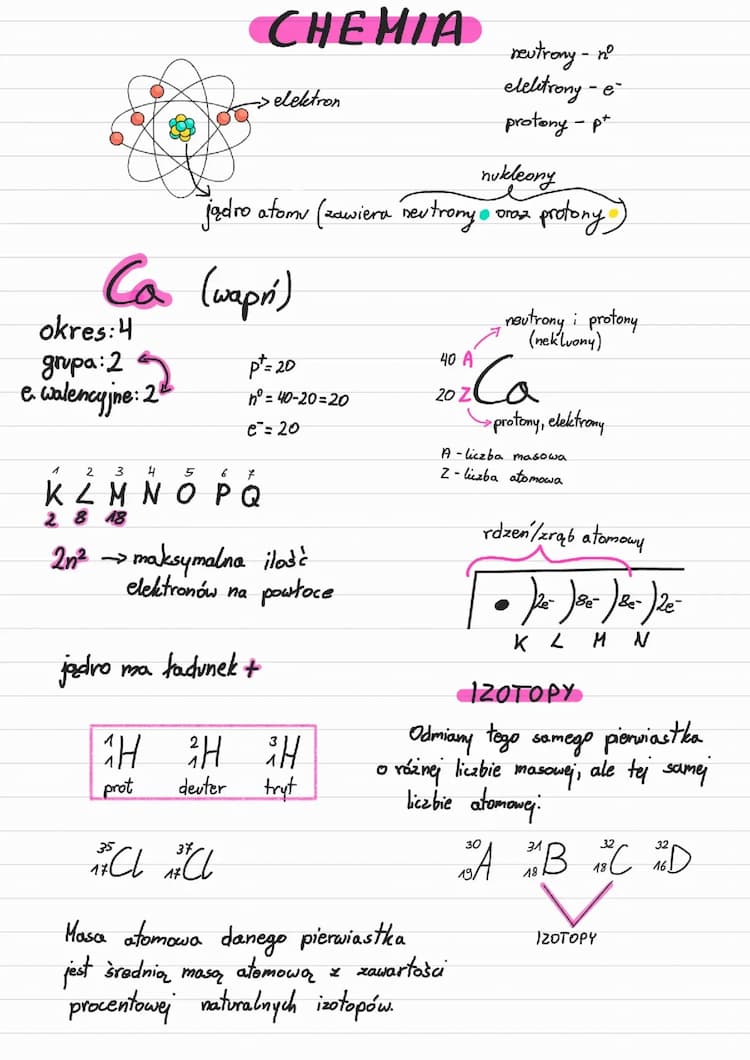 CHEMIA
neutrony - n⁰
elektrony - e⁻
protony - p⁺
elektron
nukleony
jądro atomu (zawiera neutrony oraz protony)
Ca (wapń)
okres: 4
grupa: 2
e. walencyjne: 2
p⁺ = 20
n⁰ = 40-20=20
e⁻ = 20
neutrony i protony
(nekluony)
40 A
Ca
20 Z
protony, elektrony
A - liczba masowa
Z - liczba atomowa
1 2 3 4 5 6 7
K L M N O P Q
2 8 18
2n² → maksymalna ilość
elektronów na powłoce
rdzeń/zrąb atomowy
)2e⁻ )8e⁻ )8e⁻ )2e⁻
K L M N
jądro ma ładunek +
¹₁H ²₁H ³₁H
prot deuter tryt
³⁵₁₇Cl ³⁷₁₇Cl
IZOTOPY
Odmiany tego samego pierwiastka
o różnej liczbie masowej, ale tej samej
liczbie atomowej.
³⁰₁₉A ³¹₁₈B ³²₁₈C ³²₁₆D
IZOTOPY
Masa atomowa danego pierwiastka
jest średnią masą atomową z zawartości
procentowej naturalnych izotopów.